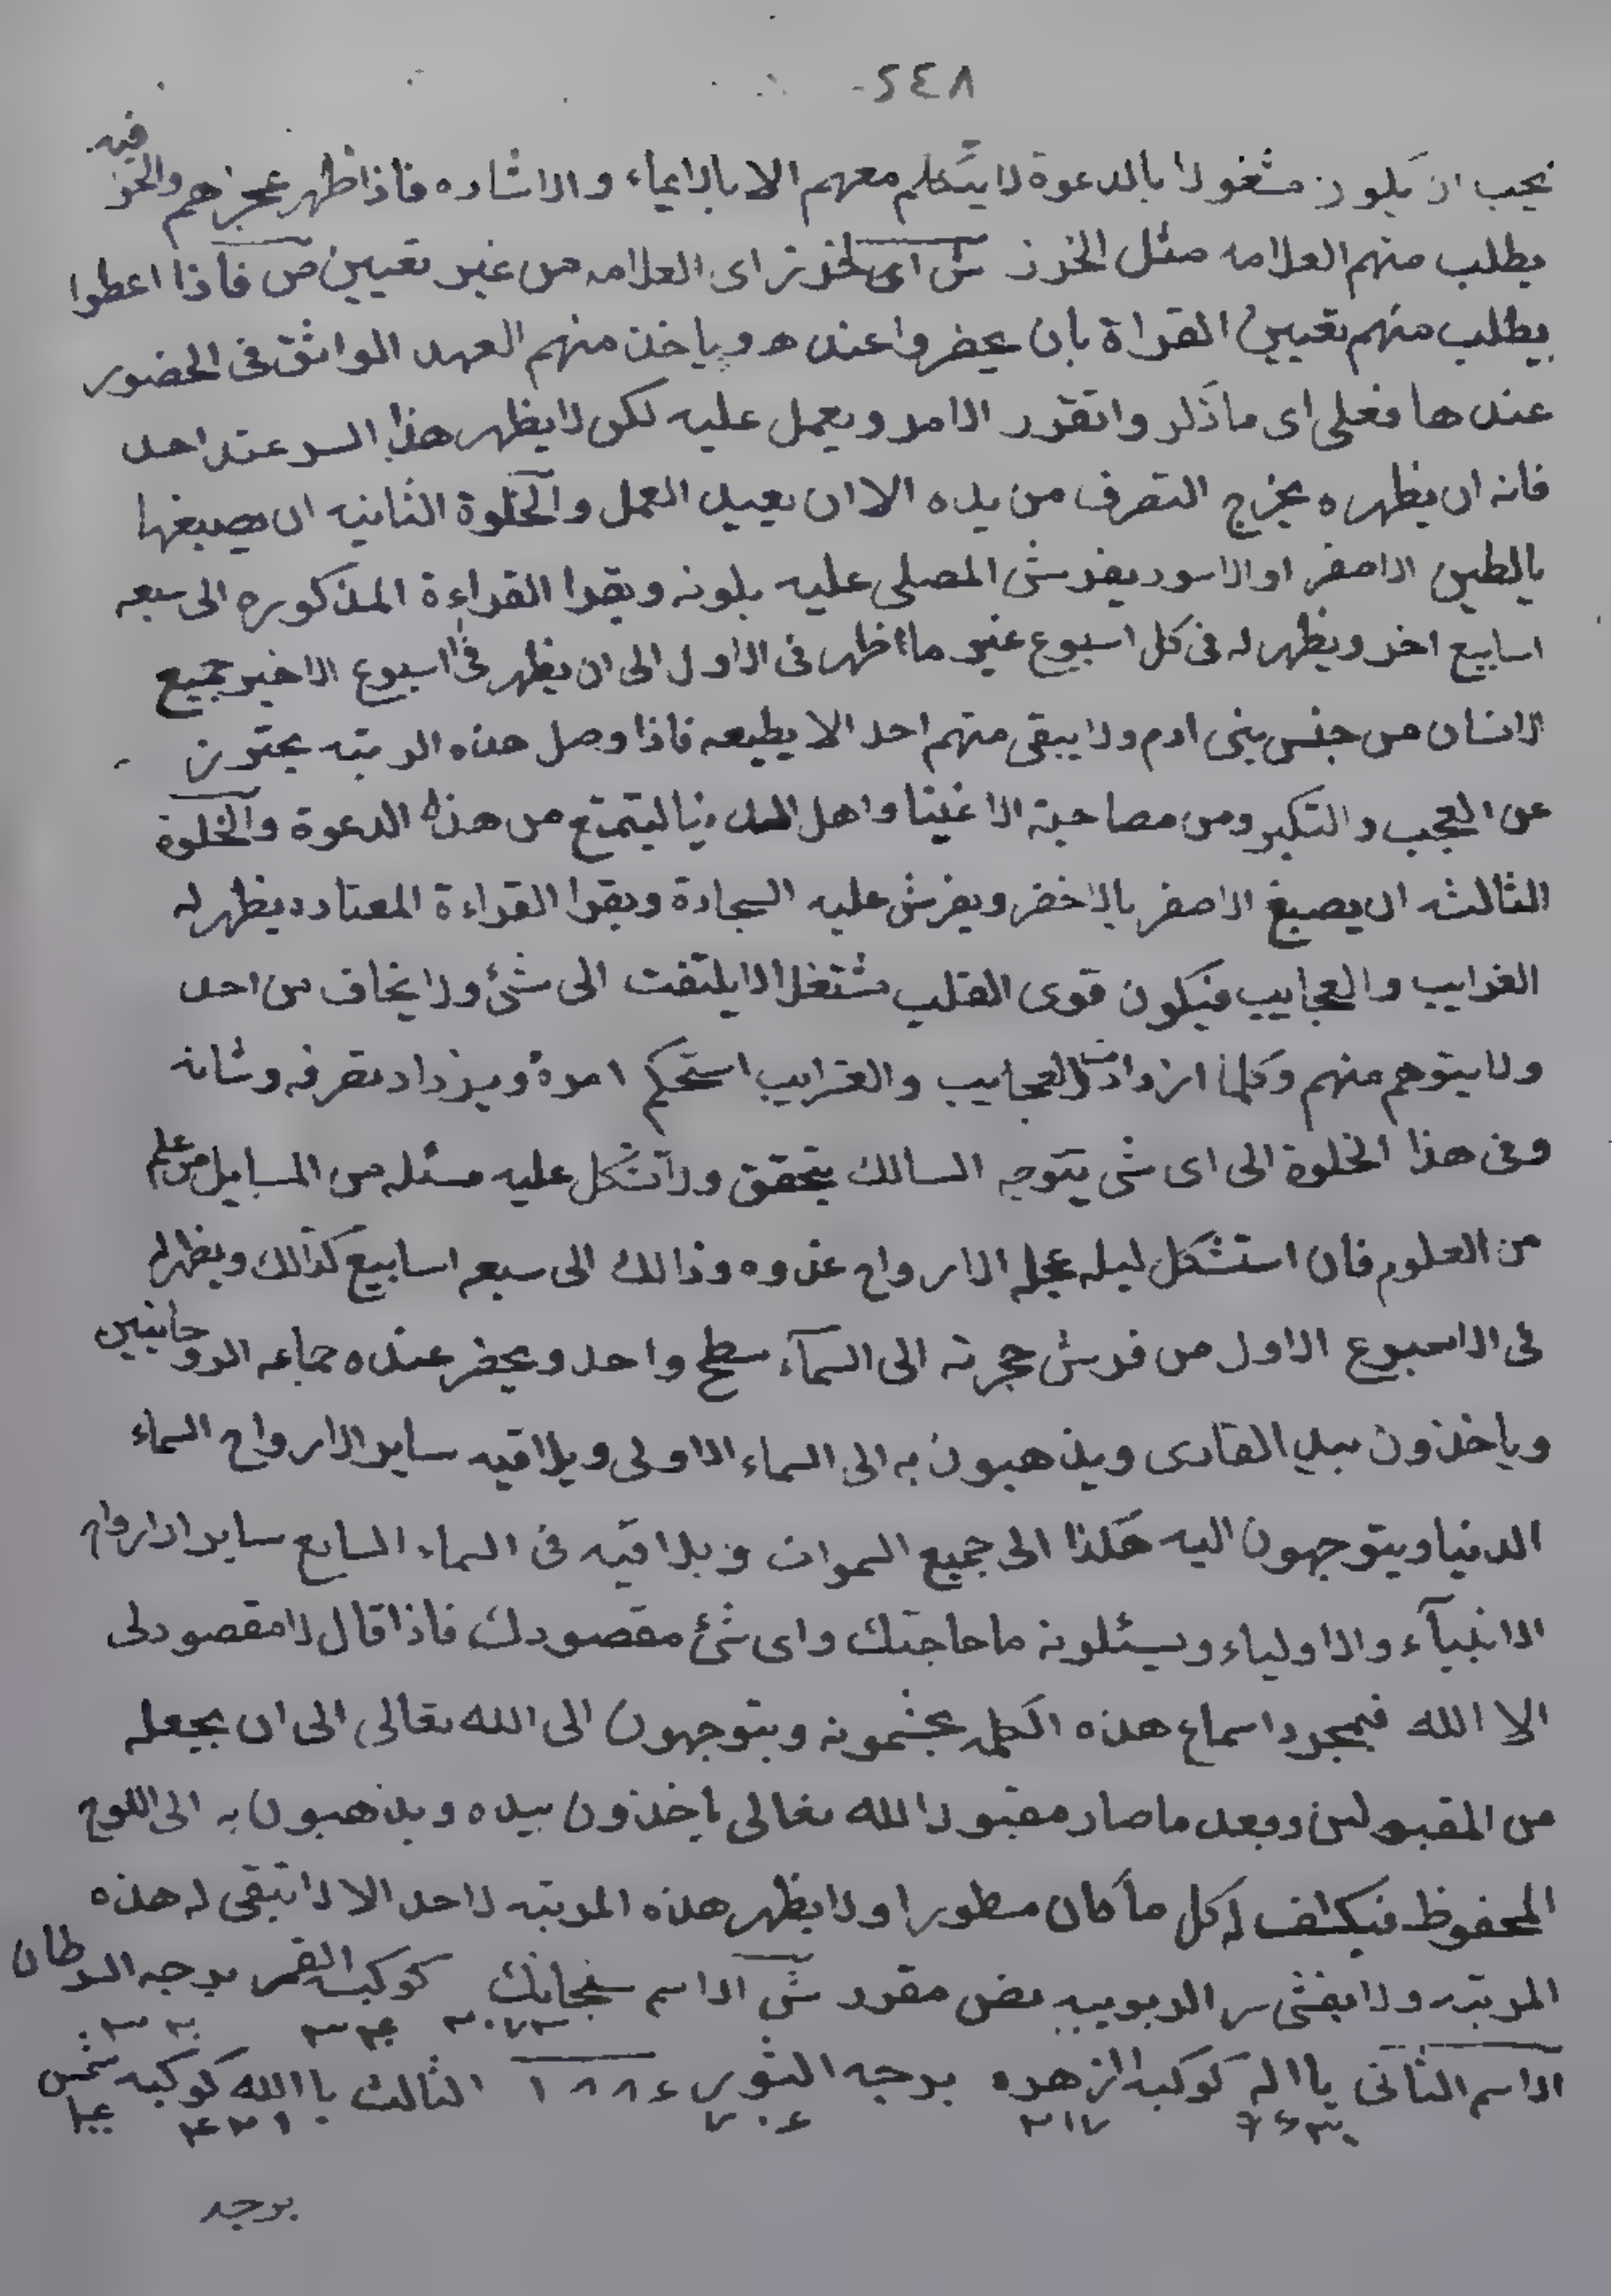 ٢٤٨
يجب ان يكون مشغولا بالدعوة لا يتكلم معهم الا بالايماء والاشاره فاذا ظهر عجزهم والخوف فيه
يطلب منهم العلامه مثل الخرز ش اى الخرز اى العلامه من غير تعيين ص فاذا اعطوا
يطلب منهم تعيين القراة بان يحضروا عنده وياخذ منهم العهد الواثق فى الحضور
عندها فعلى اى ماذكر واتقرر الامر ويعمل عليه لكن لا يظهر هذا السر عند احد
فانه ان يظهره يخرج التصرف من يده الا ان يعيد العمل والخلوة الثانيه ان يصبغها
بالطين الاصفر او الاسود يفرش المصلى عليه بلونه ويقرا القراءة المذكوره الى سبعه
اسابيع اخر ويظهر له فى كل اسبوع غير ما اظهر فى الاول الى ان يظهر فى اسبوع الاخير جميع
الانسان من جنس بنى ادم ولا يبقى منهم احد الا يطيعه فاذا وصل هذه الرتبه يحترز
عن العجب والتكبر ومن مصاحبة الاغنيا واهل الدنيا ليتمتع من هذه الدعوة والخلوة
الثالثه ان يصبغ الاصفر بالاخضر ويفرش عليه السجادة ويقرا القراءة المعتاده يظهر له
الغرايب والعجايب فيكون قوى القلب مشتغلا لا يلتفت الى شئ ولا يخاف من احد
ولا يتوهم منهم وكلما ازدادت العجايب والغرايب استحكم امره ويزداد تصرفه وشانه
وفى هذا الخلوة الى اى شى يتوجه السالك يتحقق ولا تشكل عليه مسئله من المسايل من علم
من العلوم فان استشكل ليله عجله الارواح غدوه وذالك الى سبعه اسابيع كذالك ويظهر له
فى الاسبوع الاول من فرش حجرته الى السمآء سطح واحد ويحضر عنده جماعه الروحانيين
وياخذون بيد القارى ويذهبون به الى السماء الاولى ويلاقيه ساير الارواح السماء
الدنيا ويتوجهون اليه هكذا الى جميع السموات ويلاقيه فى السماء السابع ساير الارواح
الانبيآء والاولياء ويسئلونه ما حاجتك واى شئ مقصودك فاذا قال لا مقصود لى
الا الله فبمجرد اسماع هذه الكلمه يحشمونه ويتوجهون الى الله تعالى الى ان يجعله
من المقبولين وبعد ما صار مقبولا لله تعالى ياخذون بيده ويذهبون به الى اللوح
المحفوظ فيكشف له كل ما كان مسطورا ولا يظهر هذه المرتبه لاحد الا لا تبقى له هذه
المرتبه ولا يفشى سر الربوبيه نص مقرر ش الاسم سبحانك كوكبه القمر برجه السرطان
الاسم الثانى يا اله كوكبه الزهره برجه الثور ١٨٨٤ الثالث يا الله كوكبه شمس
برجه